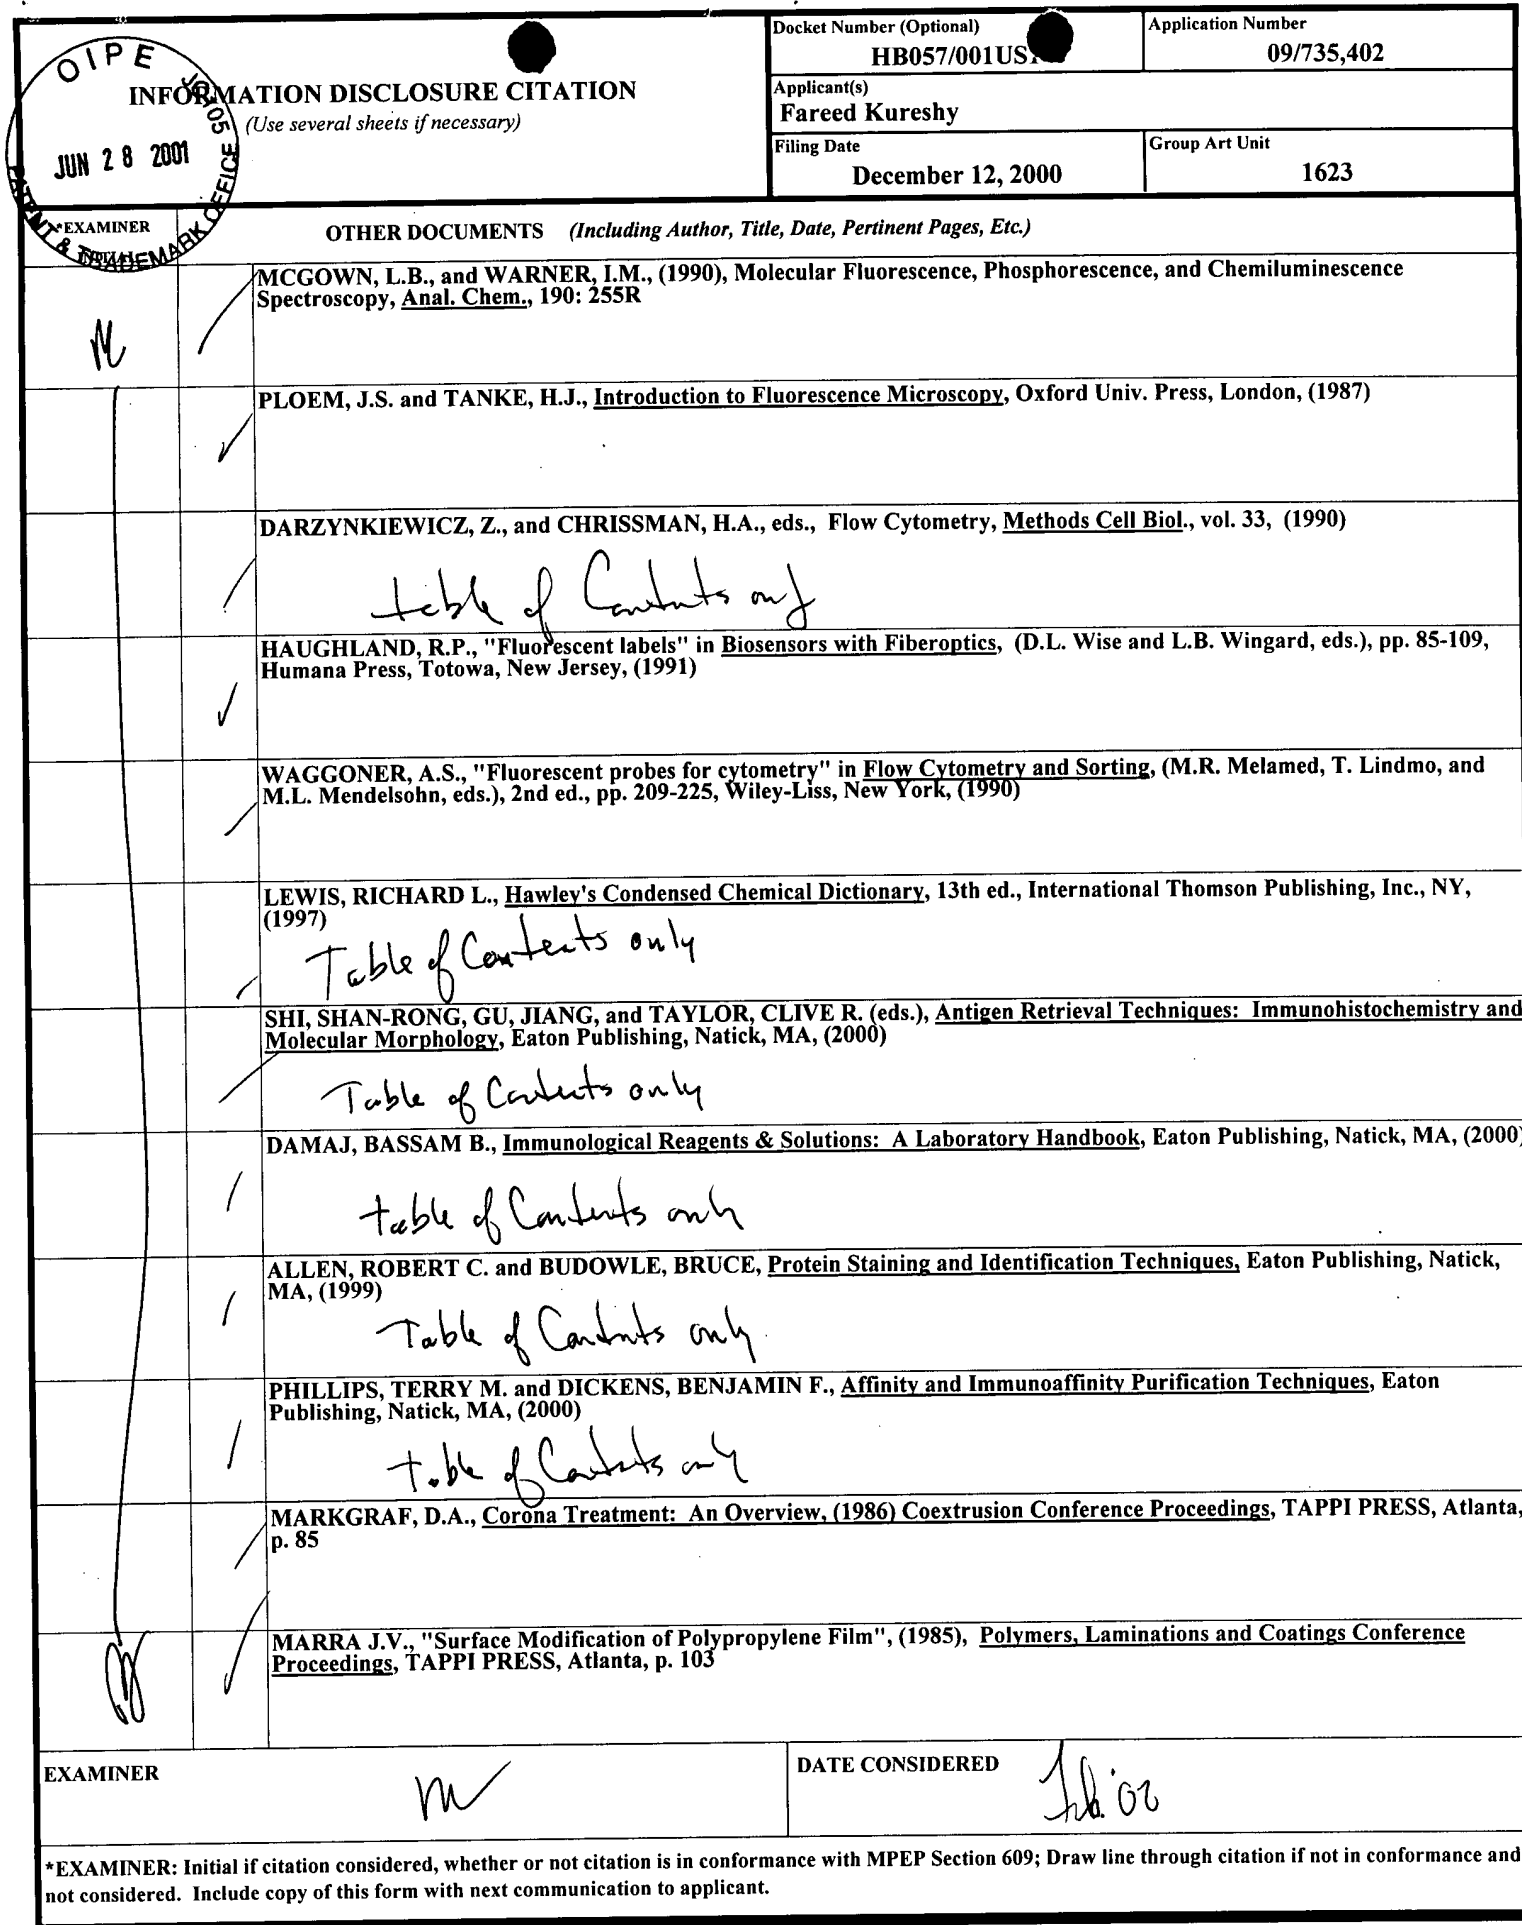 OIPE JC105
JUN 28 2001
PATENT & TRADEMARK OFFICE
INFORMATION DISCLOSURE CITATION
(Use several sheets if necessary)
Docket Number (Optional)
HB057/001US
Application Number
09/735,402
Applicant(s)
Fareed Kureshy
Filing Date
December 12, 2000
Group Art Unit
1623
*EXAMINER
OTHER DOCUMENTS (Including Author, Title, Date, Pertinent Pages, Etc.)
MCGOWN, L.B., and WARNER, I.M., (1990), Molecular Fluorescence, Phosphorescence, and Chemiluminescence
Spectroscopy, Anal. Chem., 190: 255R
PLOEM, J.S. and TANKE, H.J., Introduction to Fluorescence Microscopy, Oxford Univ. Press, London, (1987)
DARZYNKIEWICZ, Z., and CHRISSMAN, H.A., eds., Flow Cytometry, Methods Cell Biol., vol. 33, (1990)
table of Contents only
HAUGHLAND, R.P., "Fluorescent labels" in Biosensors with Fiberoptics, (D.L. Wise and L.B. Wingard, eds.), pp. 85-109,
Humana Press, Totowa, New Jersey, (1991)
WAGGONER, A.S., "Fluorescent probes for cytometry" in Flow Cytometry and Sorting, (M.R. Melamed, T. Lindmo, and
M.L. Mendelsohn, eds.), 2nd ed., pp. 209-225, Wiley-Liss, New York, (1990)
LEWIS, RICHARD L., Hawley's Condensed Chemical Dictionary, 13th ed., International Thomson Publishing, Inc., NY,
(1997)
Table of Contents only
SHI, SHAN-RONG, GU, JIANG, and TAYLOR, CLIVE R. (eds.), Antigen Retrieval Techniques: Immunohistochemistry and
Molecular Morphology, Eaton Publishing, Natick, MA, (2000)
Table of Contents only
DAMAJ, BASSAM B., Immunological Reagents & Solutions: A Laboratory Handbook, Eaton Publishing, Natick, MA, (2000)
table of Contents only
ALLEN, ROBERT C. and BUDOWLE, BRUCE, Protein Staining and Identification Techniques, Eaton Publishing, Natick,
MA, (1999)
Table of Contents only
PHILLIPS, TERRY M. and DICKENS, BENJAMIN F., Affinity and Immunoaffinity Purification Techniques, Eaton
Publishing, Natick, MA, (2000)
table of Contents only
MARKGRAF, D.A., Corona Treatment: An Overview, (1986) Coextrusion Conference Proceedings, TAPPI PRESS, Atlanta,
p. 85
MARRA J.V., "Surface Modification of Polypropylene Film", (1985), Polymers, Laminations and Coatings Conference
Proceedings, TAPPI PRESS, Atlanta, p. 103
EXAMINER
DATE CONSIDERED
Feb. '02
*EXAMINER: Initial if citation considered, whether or not citation is in conformance with MPEP Section 609; Draw line through citation if not in conformance and
not considered. Include copy of this form with next communication to applicant.